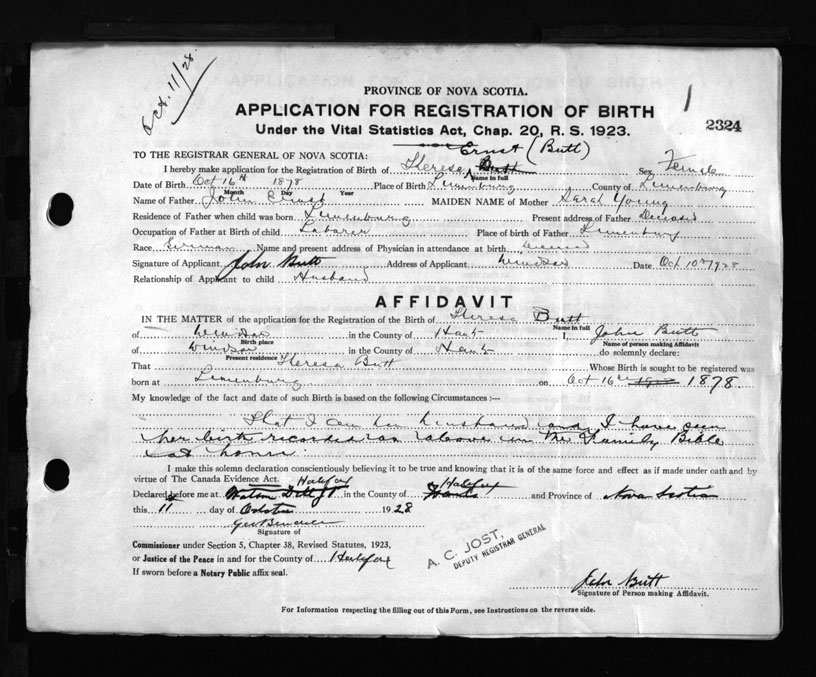 Oct. 11/28.
PROVINCE OF NOVA SCOTIA.
APPLICATION FOR REGISTRATION OF BIRTH
1
2324
Under the Vital Statistics Act, Chap. 20, R. S. 1923.
Ernst (Butt)
TO THE REGISTRAR GENERAL OF NOVA SCOTIA:
I hereby make application for the Registration of Birth of Theresa Butt Sex Female
Name in full
Date of Birth Oct 16th 1878 Place of Birth Lunenburg County of Lunenburg
Month Day Year
Name of Father John Ernst MAIDEN NAME of Mother Sarah Young
Residence of Father when child was born Lunenburg Present address of Father Deceased
Occupation of Father at Birth of child Laborer Place of birth of Father Lunenburg
Race German Name and present address of Physician in attendance at birth
Signature of Applicant John Butt Address of Applicant Windsor Date Oct 10th 1928
Relationship of Applicant to child Husband
AFFIDAVIT
IN THE MATTER of the application for the Registration of the Birth of Theresa Butt
Name in full
of Windsor in the County of Hants I, John Butt
Birth place Name of person making Affidavit
of Windsor in the County of Hants do solemnly declare:
Present residence
That Theresa Butt Whose Birth is sought to be registered was
born at Lunenburg on Oct 16th 1878.
My knowledge of the fact and date of such Birth is based on the following Circumstances :—
That I am her husband and I have seen
her birth recorded as above in the Family Bible
at home.
I make this solemn declaration conscientiously believing it to be true and knowing that it is of the same force and effect as if made under oath and by
virtue of The Canada Evidence Act.
Declared before me at Halifax in the County of Halifax and Province of Nova Scotia
this 11 day of October 1928
Signature of
Commissioner under Section 5, Chapter 38, Revised Statutes, 1923,
or Justice of the Peace in and for the County of Halifax
If sworn before a Notary Public affix seal.
A. C. JOST,
DEPUTY REGISTRAR GENERAL
John Butt
Signature of Person making Affidavit.
For Information respecting the filling out of this Form, see Instructions on the reverse side.